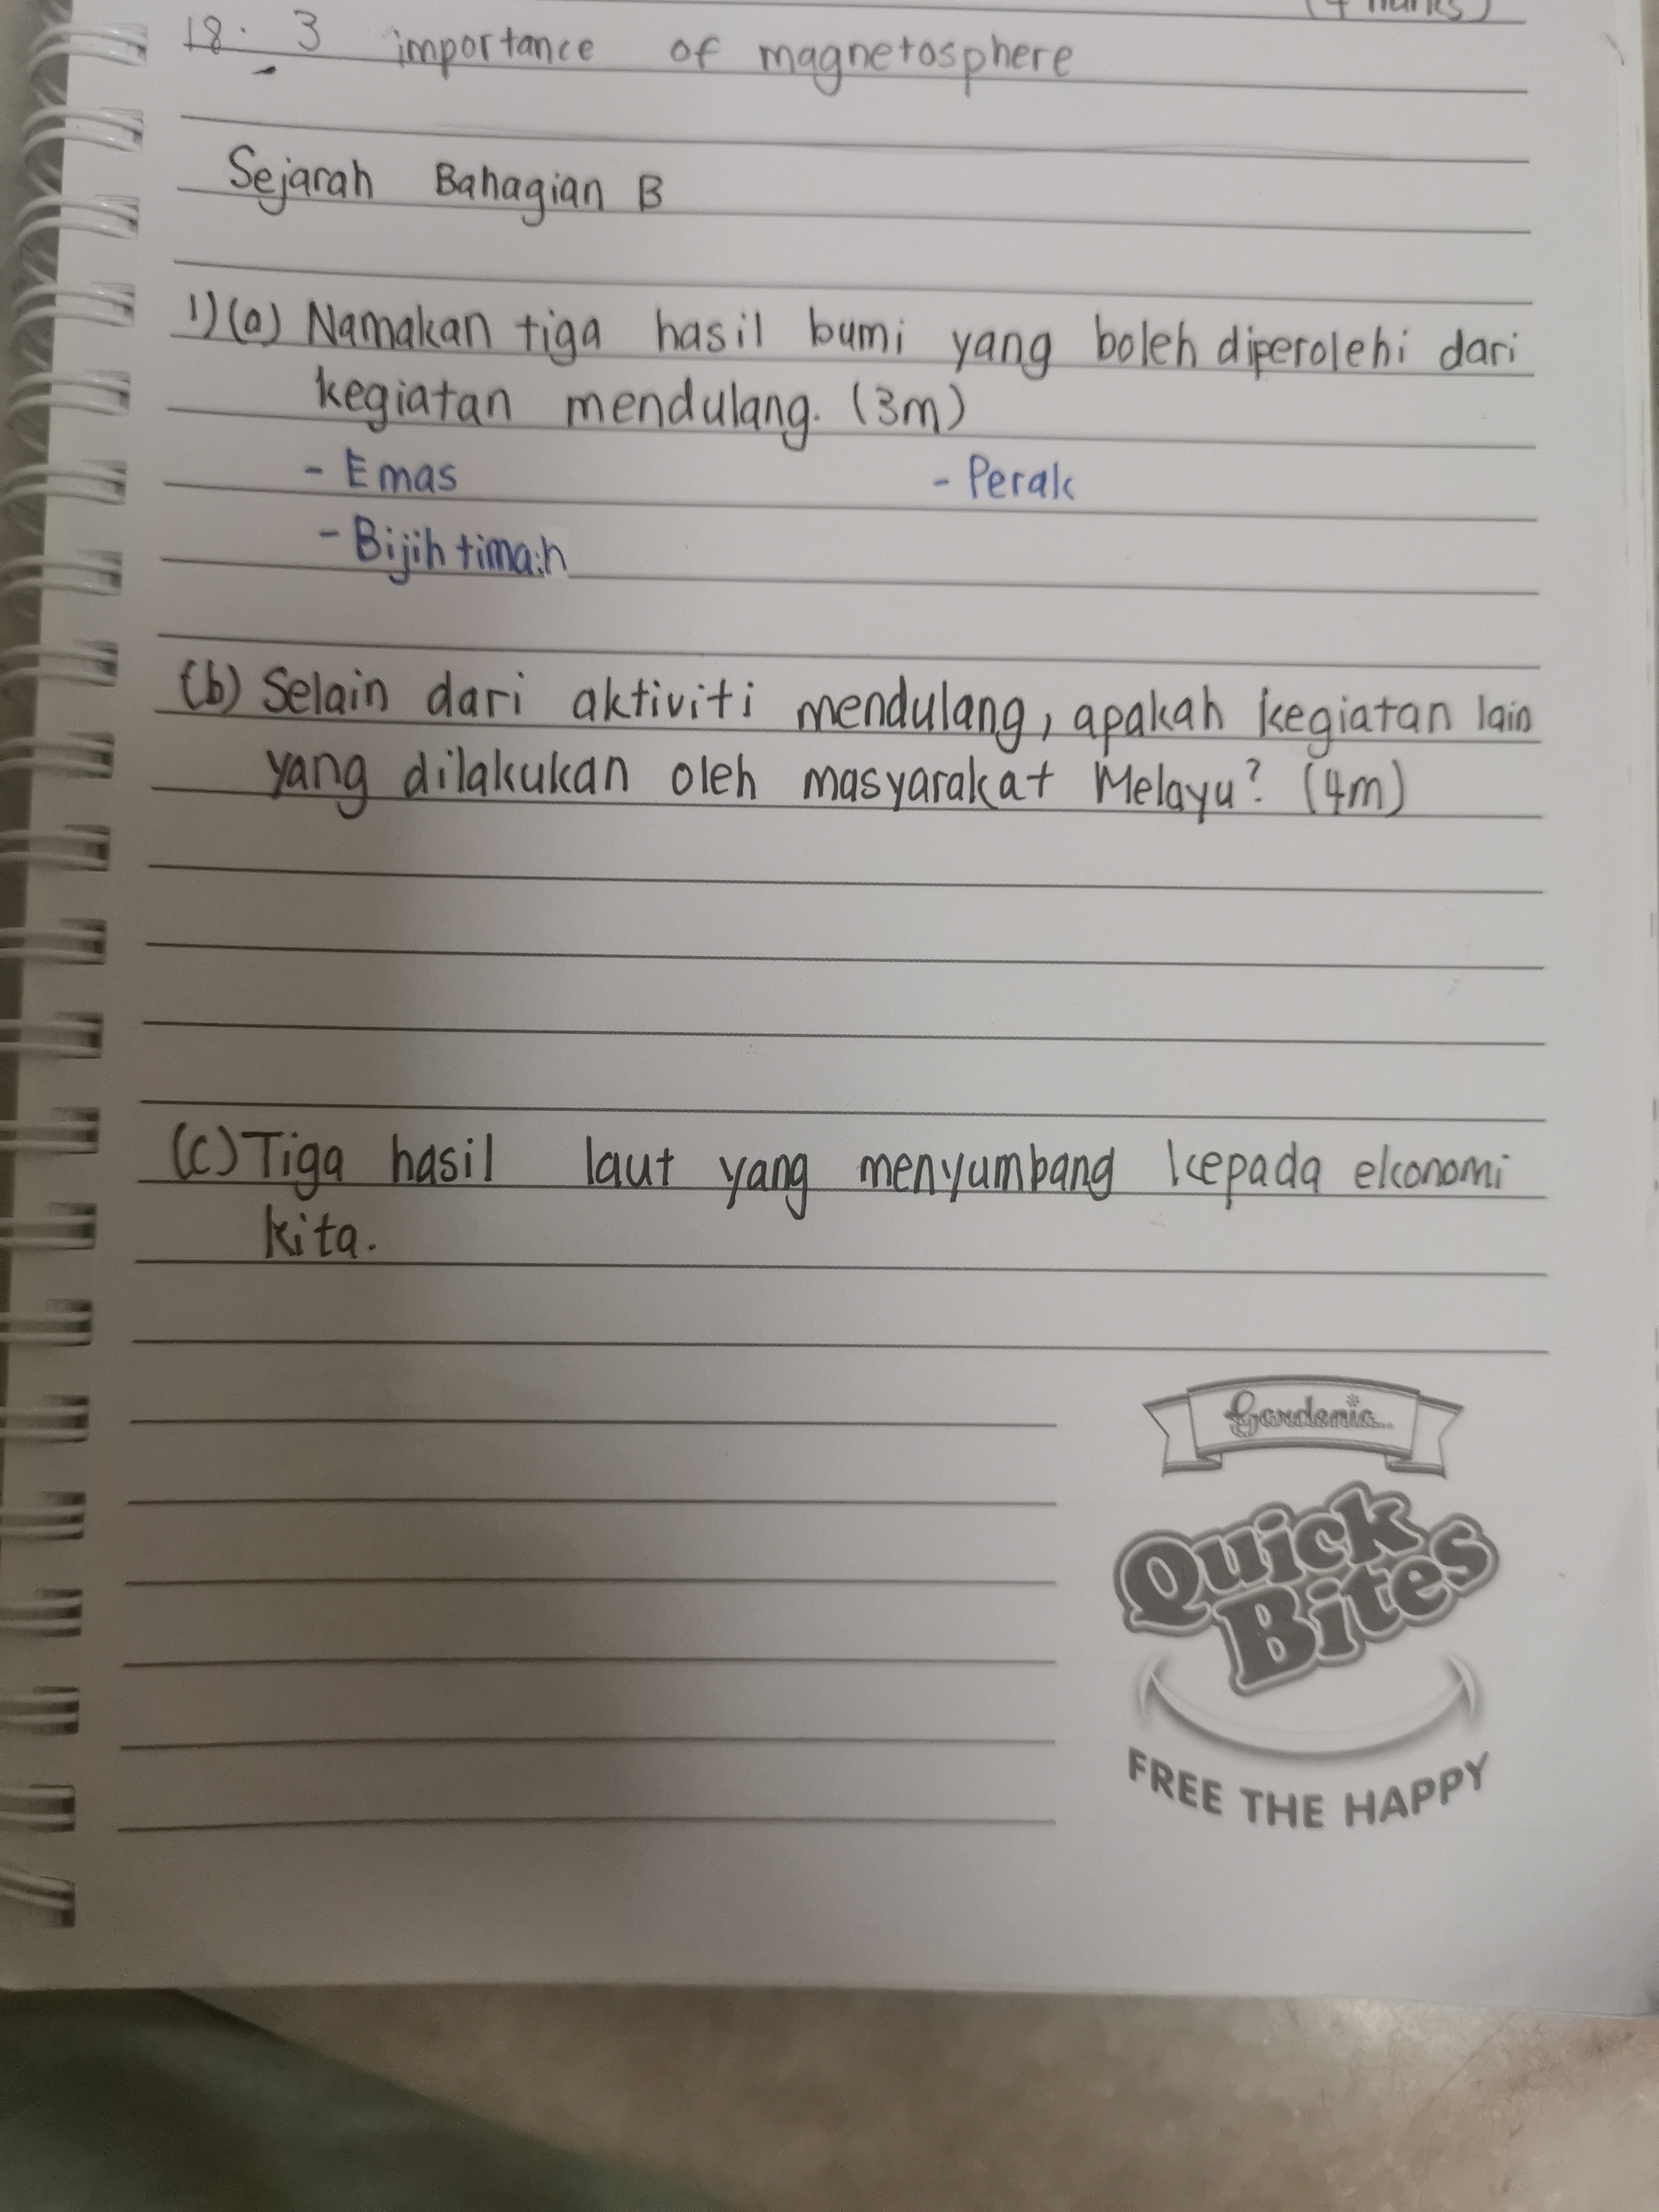 18. 3 importance of magnetosphere
Sejarah Bahagian B
1)(a) Namakan tiga hasil bumi yang boleh diperolehi dari
kegiatan mendulang. (3m)
- Emas - Perak
- Bijih timah
(b) Selain dari aktiviti mendulang, apakah kegiatan lain
yang dilakukan oleh masyarakat Melayu? (4m)
(c) Tiga hasil laut yang menyumbang kepada ekonomi
kita.
Gardenia
Quick
Bites
FREE THE HAPPY